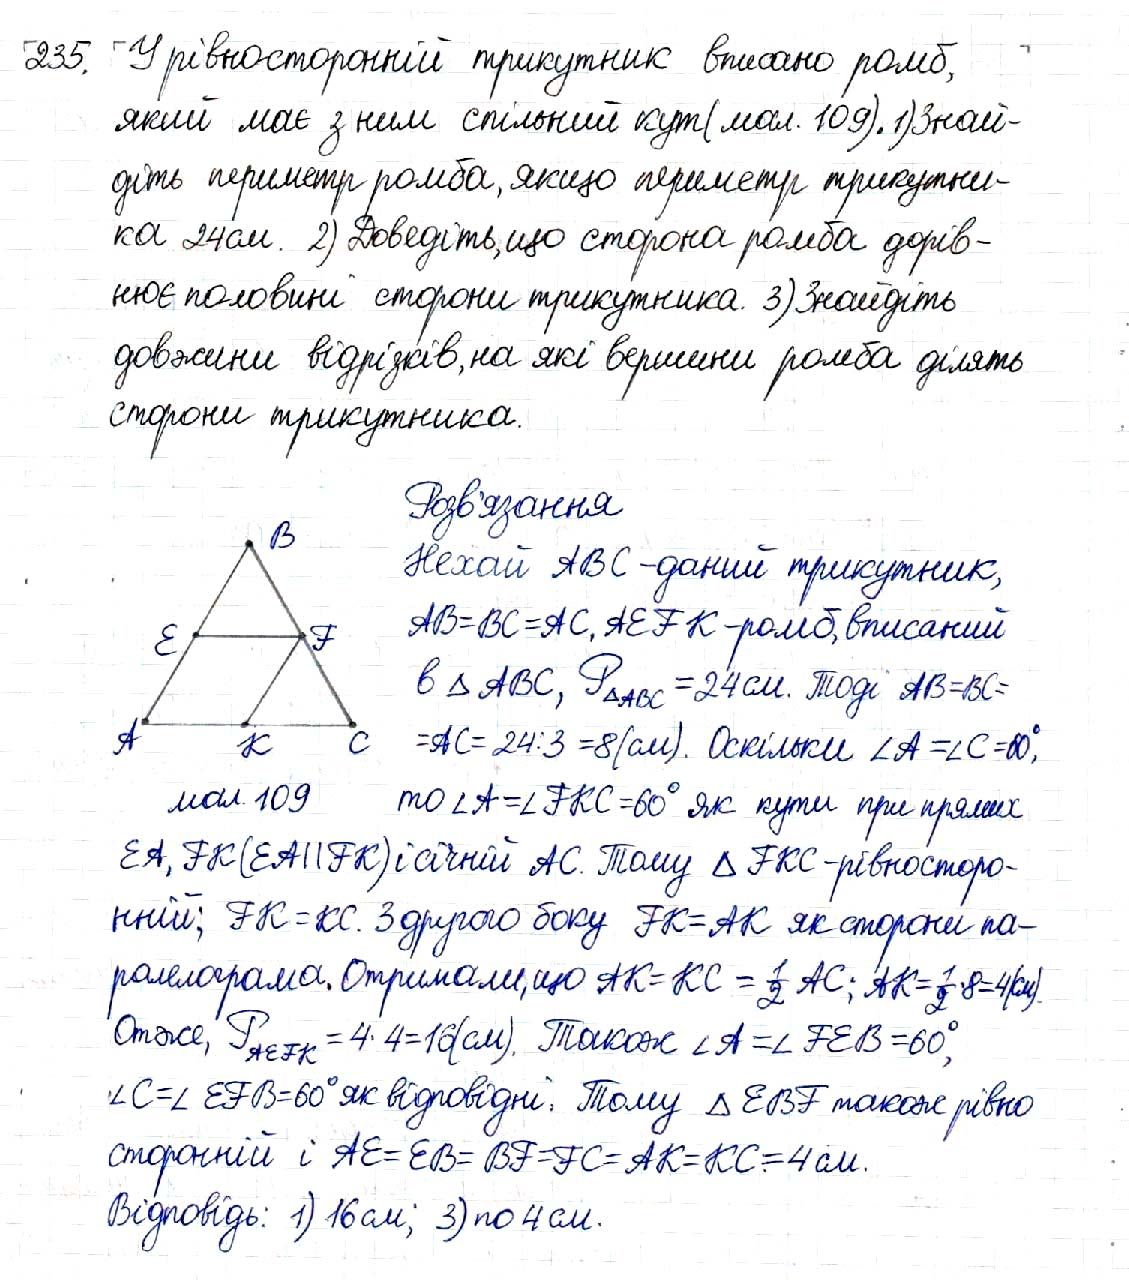 235. У рівносторонній трикутник вписано ромб,
який має з ним спільний кут (мал. 109). 1) Знай-
діть периметр ромба, якщо периметр трикутни-
ка 24см. 2) Доведіть, що сторона ромба дорів-
нює половині сторони трикутника. 3) Знайдіть
довжини відрізків, на які вершини ромба ділять
сторони трикутника.
Розв'язання
B
E
F
A
K
C
мал. 109
Нехай ABC - даний трикутник,
AB=BC=AC, AEFK - ромб, вписаний
в △ABC, P△ABC = 24см. Тоді AB=BC=
=AC= 24:3 =8(см). Оскільки ∠A=∠C=60°,
то ∠A=∠FKC=60° як кути при прямих
EA, FK (EA||FK) і січній AC. Тому △FKC - рівносторо-
нній; FK=KC. З другого боку FK=AK як сторони па-
ралелограма. Отримали, що AK=KC = 1/2 AC; AK=1/2·8=4(см).
Отже, PAEFK = 4·4=16(см). Також ∠A=∠FEB=60°,
∠C=∠EFB=60° як відповідні. Тому △EBF також рівно
сторонній і AE=EB=BF=FC=AK=KC=4см.
Відповідь: 1) 16см; 3) по 4см.